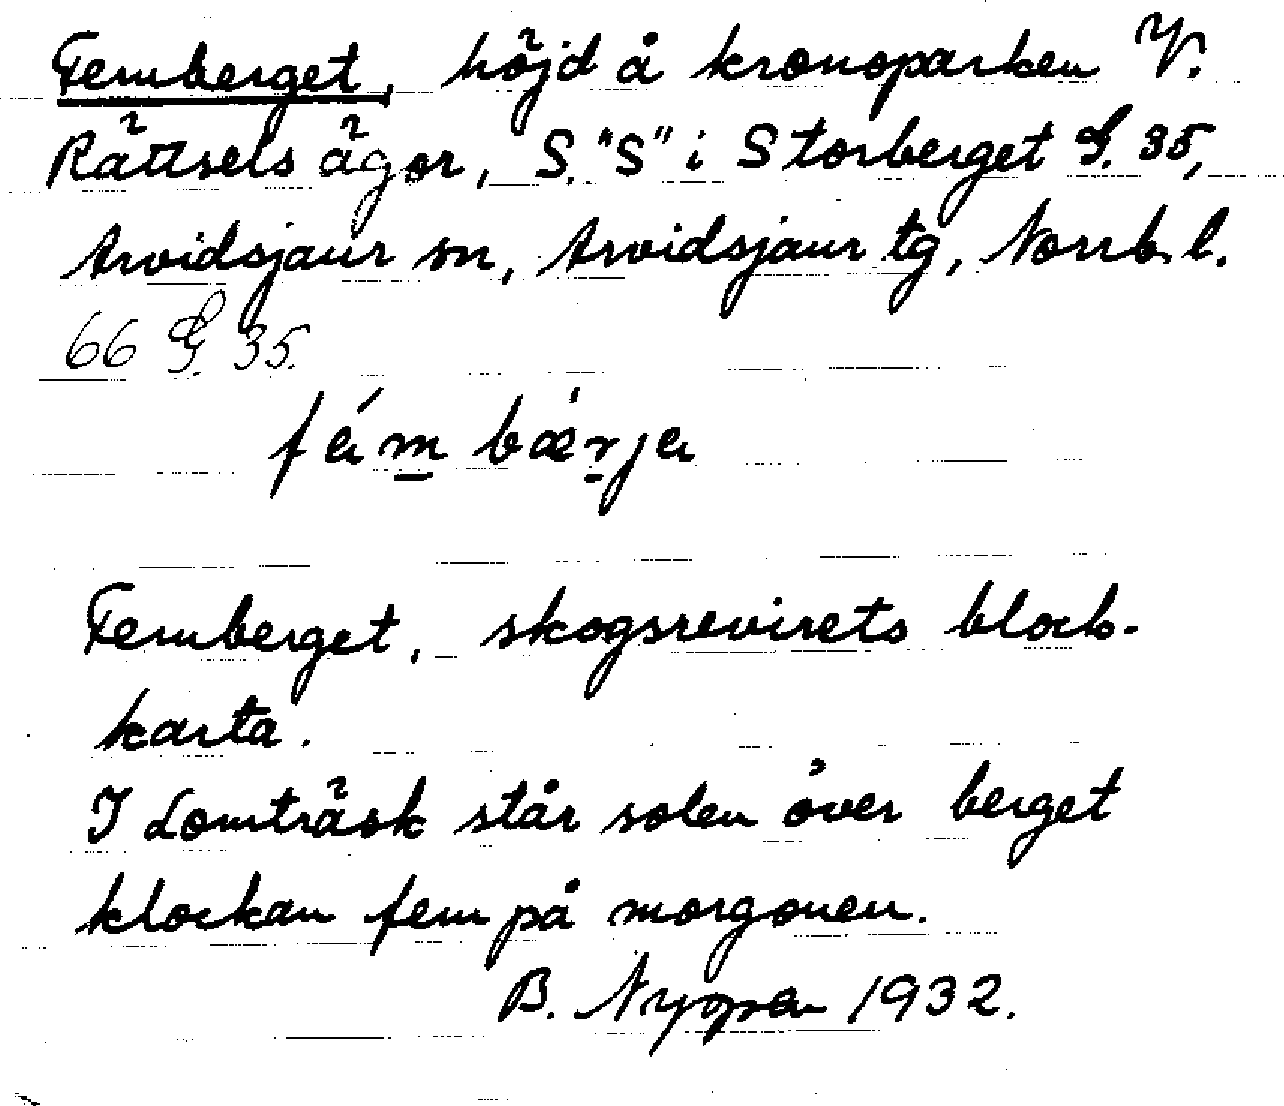 Femberget, höjd å kronoparken V.
Rättsels ägor, S. "S" i Storberget G. 35,
Arvidsjaur sn, Arvidsjaur tg, Norrb. l.
66 G. 35.
fém bǽrje
Femberget, skogsrevirets block-
karta.
I Lomträsk står solen över berget
klockan fem på morgonen.
B. Nyman 1932.